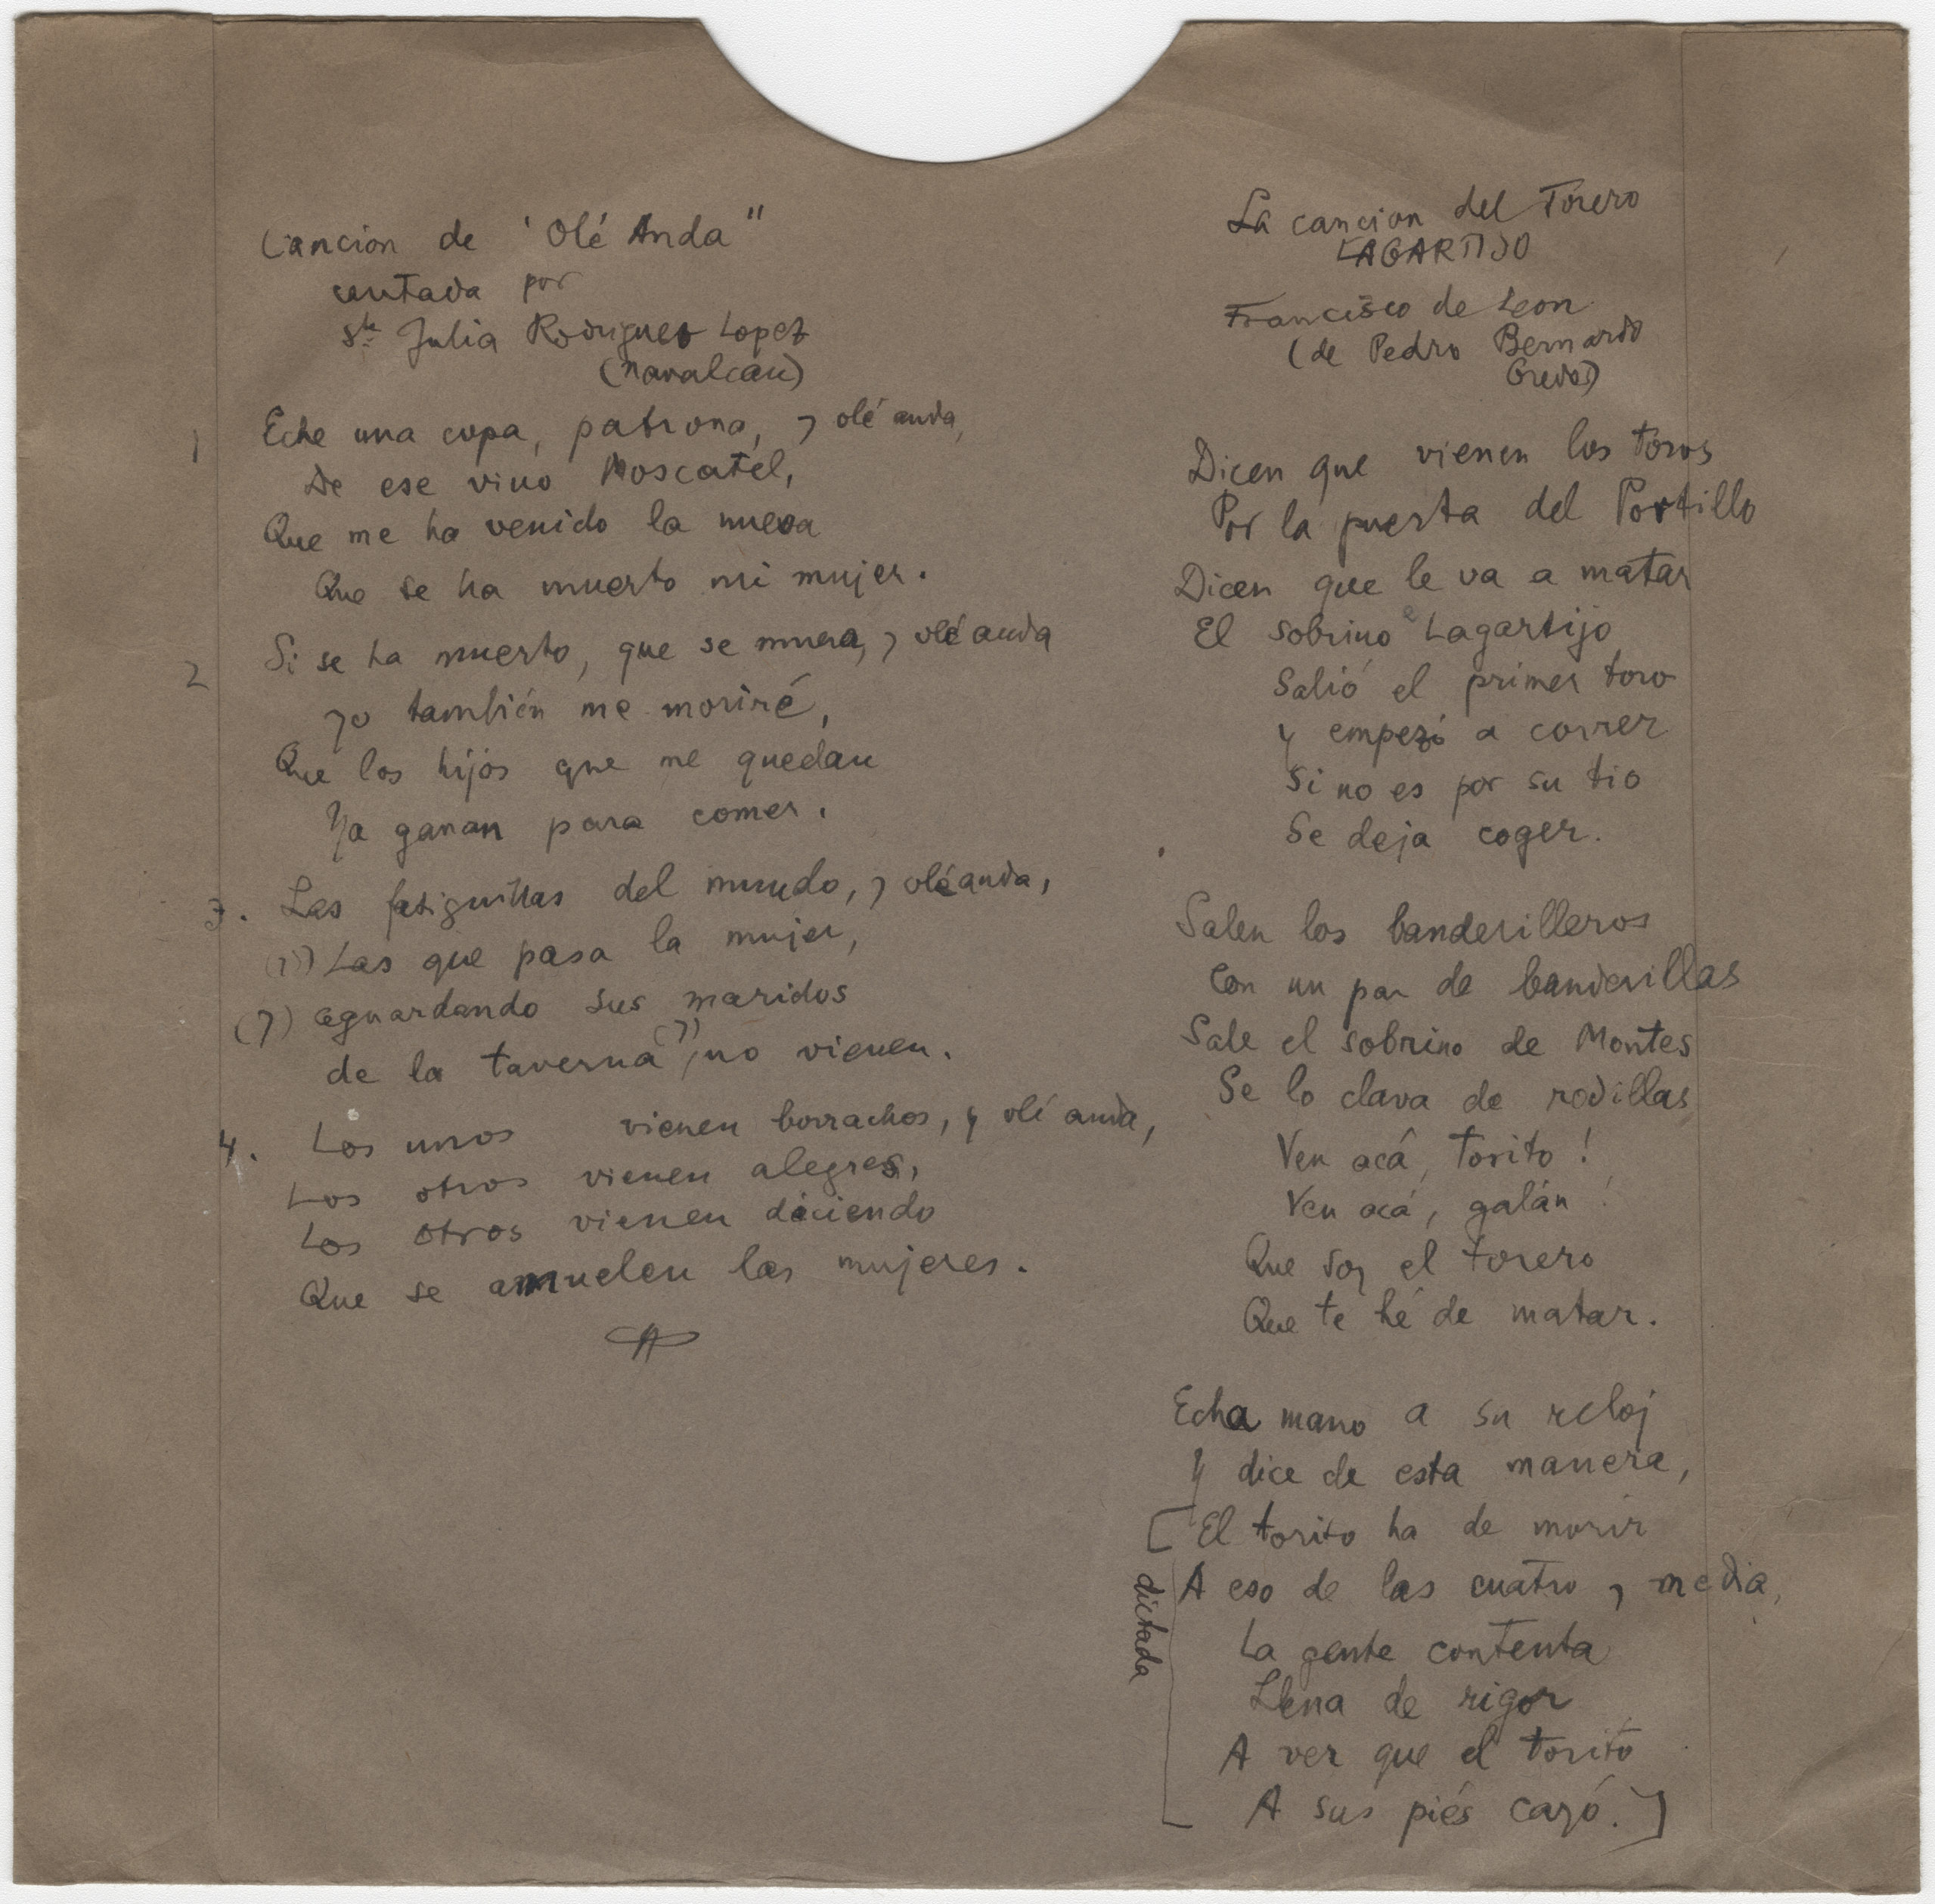 Cancion de 'Olé Anda"
cantada por
Sta Julia Rodriguez Lopez
(Navalcan)
1 Eche una copa, patrona, y olé anda,
De ese vino Moscatel,
Que me ha venido la nueva
Que se ha muerto mi mujer.
2 Si se ha muerto, que se muera, y olé anda
yo también me moriré,
Que los hijos que me quedan
Ya ganan para comer.
3. Las fatiguillas del mundo, y olé anda,
(?) Las que pasa la mujer,
(?) aguardando sus maridos
de la taverna (?), no vienen.
4. Los unos vienen borrachos, y olé anda,
Los otros vienen alegres,
Los otros vienen diciendo
Que se amuelen las mujeres.
La cancion del Torero
LAGARTIJO
Francisco de Leon
(de Pedro Bernardo
Gredos)
Dicen que vienen los toros
Por la puerta del Portillo
Dicen que le va a matar
El sobrino e Lagartijo
Salió el primer toro
y empezó a correr
Si no es por su tio
Se deja coger.
Salen los banderilleros
Con un par de banderillas
Sale el sobrino de Montes
Se lo clava de rodillas
Ven acá, torito!
Ven acá, galán!
Que soy el torero
Que te hé de matar.
Echa mano a su reloj
Y dice de esta manera,
[El torito ha de morir
A eso de las cuatro y media,
La gente contenta
Llena de rigor
A ver que el torito
A sus piés cayó.]
dictada